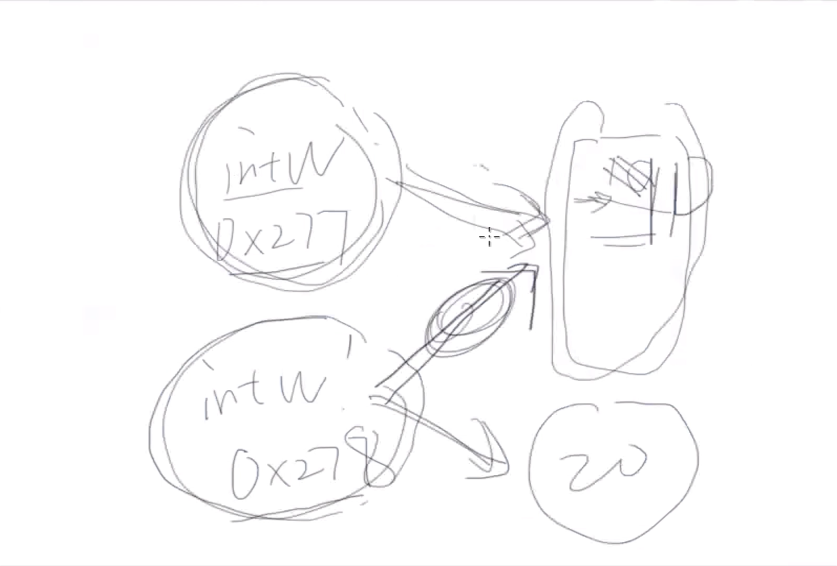 intW
0x277
intW
0x278
20